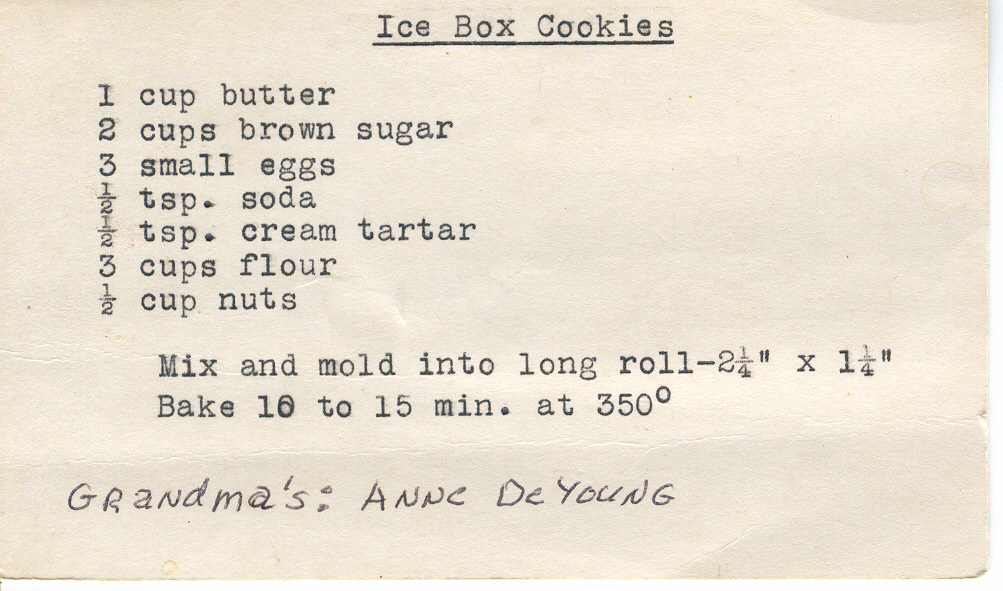 Ice Box Cookies
1 cup butter
2 cups brown sugar
3 small eggs
½ tsp. soda
½ tsp. cream tartar
3 cups flour
½ cup nuts
Mix and mold into long roll-2¼" x 1¼"
Bake 10 to 15 min. at 350°
Grandma's: Anne DeYoung